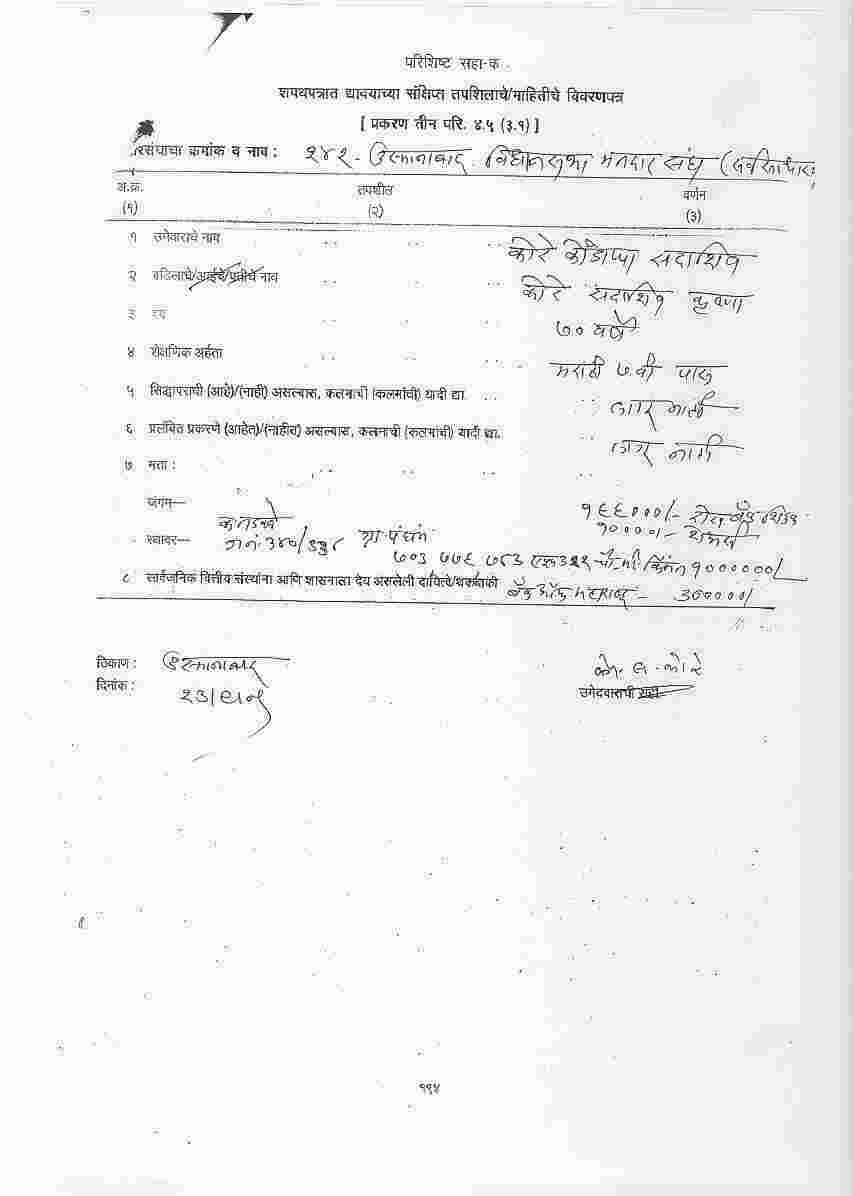 परिशिष्ट सहा-क
शपथपत्रात द्यावयाच्या संक्षिप्त तपशिलाचे/माहितीचे विवरणपत्र
[ प्रकरण तीन परि. ४.५ (३.१) ]
संघाचा क्रमांक व नाव : २४२ - उस्मानाबाद विधानसभा मतदार संघ
अ.क्र. तपशील वर्णन
(१) (२) (३)
१ उमेवाराचे नाव .. .. .. कोरे कोंडाप्पा सदाशिव
२ वडिलाचे/आईचे/पतीचे नाव .. .. कोरे सदाशिव कृष्णा
३ वय .. .. .. ७० वर्षे
४ शैक्षणिक अर्हता .. .. .. मराठी ७ वी पास
५ सिद्धापराधी (आहे)/(नाही) असल्यास, कलमाची (कलमांची) यादी द्या. .. .. लागू नाही
६ प्रलंबित प्रकरणे (आहेत)/(नाहीत) असल्यास, कलमाची (कलमांची) यादी द्या. .. लागू नाही
७ मत्ता : .. .. .. ..
जंगम— १६६०००/-
१०००००/-
स्थावर— ७०३ ७७६ ७८३ किंमत १००००००/
८ सार्वजनिक वित्तीय संस्थांना आणि शासनाला देय असलेली दायित्वे/थकबाकी बँक ऑफ महाराष्ट्र - ३०००००/
ठिकाण : उस्मानाबाद
को. स. कोरे
दिनांक :
उमेदवाराची सही
११४